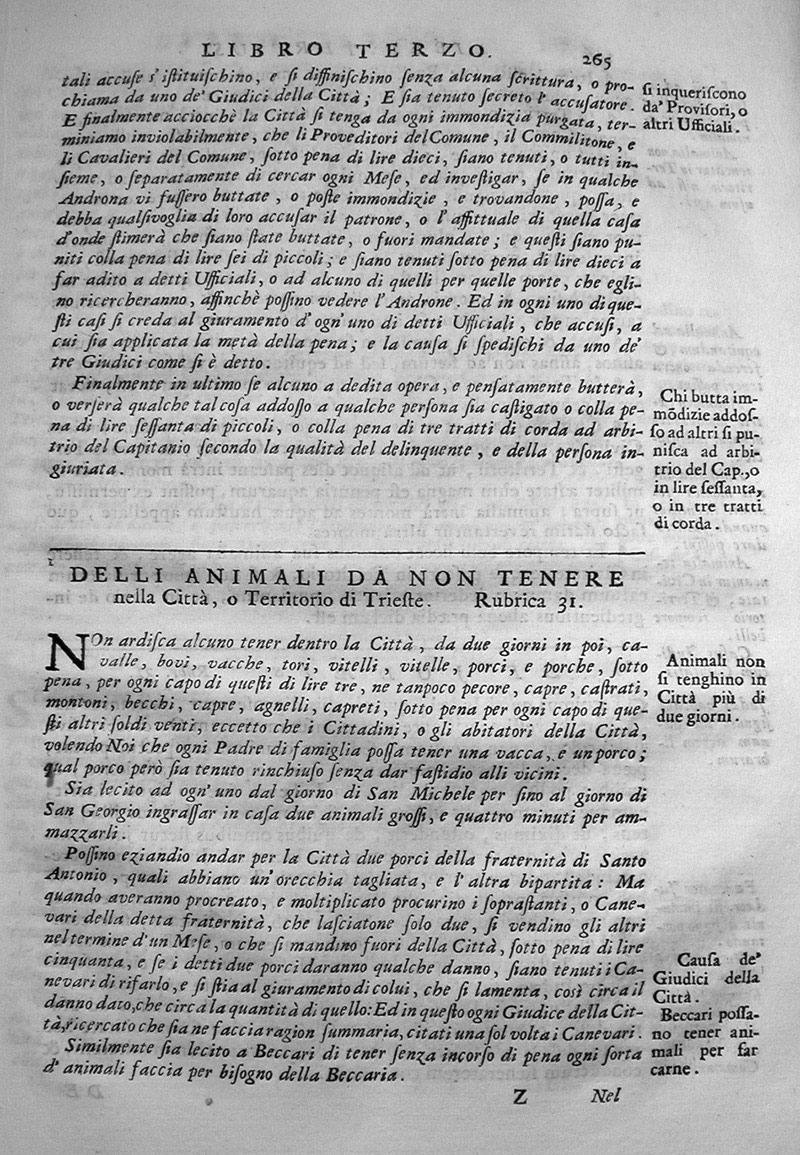 LIBRO TERZO.
265
tali accuſe s' iſtituiſchino, e ſi diffiniſchino ſenza alcuna ſcrittura, o pro-
chiama da uno de' Giudici della Città; E ſia tenuto ſecreto l' accuſatore.
E finalmente acciocchè la Città ſi tenga da ogni immondizia purgata, ter-
miniamo inviolabilmente, che li Proveditori del Comune, il Commilitone, e
li Cavalieri del Comune, ſotto pena di lire dieci, ſiano tenuti, o tutti in-
ſieme, o ſeparatamente di cercar ogni Meſe, ed inveſtigar, ſe in qualche
Androna vi fuſſero buttate, o poſte immondizie, e trovandone, poſſa, e
debba qualſivoglia di loro accuſar il patrone, o l' affittuale di quella caſa
d'onde ſtimerà che ſiano ſtate buttate, o fuori mandate; e queſti ſiano pu-
niti colla pena di lire ſei di piccoli; e ſiano tenuti ſotto pena di lire dieci a
far adito a detti Ufficiali, o ad alcuno di quelli per quelle porte, che egli-
no ricercheranno, affinchè poſſino vedere l'Androne. Ed in ogni uno di que-
ſti caſi ſi creda al giuramento d' ogn' uno di detti Ufficiali, che accuſi, a
cui ſia applicata la metà della pena; e la cauſa ſi ſpediſchi da uno de'
tre Giudici come ſi è detto.
Finalmente in ultimo ſe alcuno a dedita opera, e penſatamente butterà,
o verſerà qualche tal coſa addoſſo a qualche perſona ſia caſtigato o colla pe-
na di lire ſeſſanta di piccoli, o colla pena di tre tratti di corda ad arbi-
trio del Capitanio ſecondo la qualità del delinquente, e della perſona in-
giuriata.
ſi inqueriſcono
da' Proviſori, o
altri Ufficiali.
Chi butta im-
mõdizie addoſ-
ſo ad altri ſi pu-
niſca ad arbi-
trio del Cap., o
in lire ſeſſanta,
o in tre tratti
di corda.
DELLI ANIMALI DA NON TENERE
nella Città, o Territorio di Trieſte. Rubrica 31.
NOn ardiſca alcuno tener dentro la Città, da due giorni in poi, ca-
valle, bovi, vacche, tori, vitelli, vitelle, porci, e porche, ſotto
pena, per ogni capo di queſti di lire tre, ne tanpoco pecore, capre, caſtrati,
montoni, becchi, capre, agnelli, capreti, ſotto pena per ogni capo di que-
ſti altri ſoldi venti, eccetto che i Cittadini, o gli abitatori della Città,
volendo Noi che ogni Padre di famiglia poſſa tener una vacca, e un porco;
qual porco però ſia tenuto rinchiuſo ſenza dar faſtidio alli vicini.
Sia lecito ad ogn' uno dal giorno di San Michele per ſino al giorno di
San Georgio ingraſſar in caſa due animali groſſi, e quattro minuti per am-
mazzarli.
Poſſino eziandio andar per la Città due porci della fraternità di Santo
Antonio, quali abbiano un'orecchia tagliata, e l' altra bipartita: Ma
quando averanno procreato, e moltiplicato procurino i ſopraſtanti, o Cane-
vari della detta fraternità, che laſciatone ſolo due, ſi vendino gli altri
nel termine d'un Meſe, o che ſi mandino fuori della Città, ſotto pena di lire
cinquanta, e ſe i detti due porci daranno qualche danno, ſiano tenuti i Ca-
nevari di rifarlo, e ſi ſtia al giuramento di colui, che ſi lamenta, così circa il
danno dato, che circa la quantità di quello: Ed in queſto ogni Giudice della Cit-
tà, ricercato che ſia ne faccia ragion ſummaria, citati una ſol volta i Canevari.
Similmente ſia lecito a Beccari di tener ſenza incorſo di pena ogni ſorta
d' animali faccia per biſogno della Beccaria.
Animali non
ſi tenghino in
Città più di
due giorni.
Cauſa de'
Giudici della
Città.
Beccari poſſa-
no tener ani-
mali per far
carne.
Z Nel